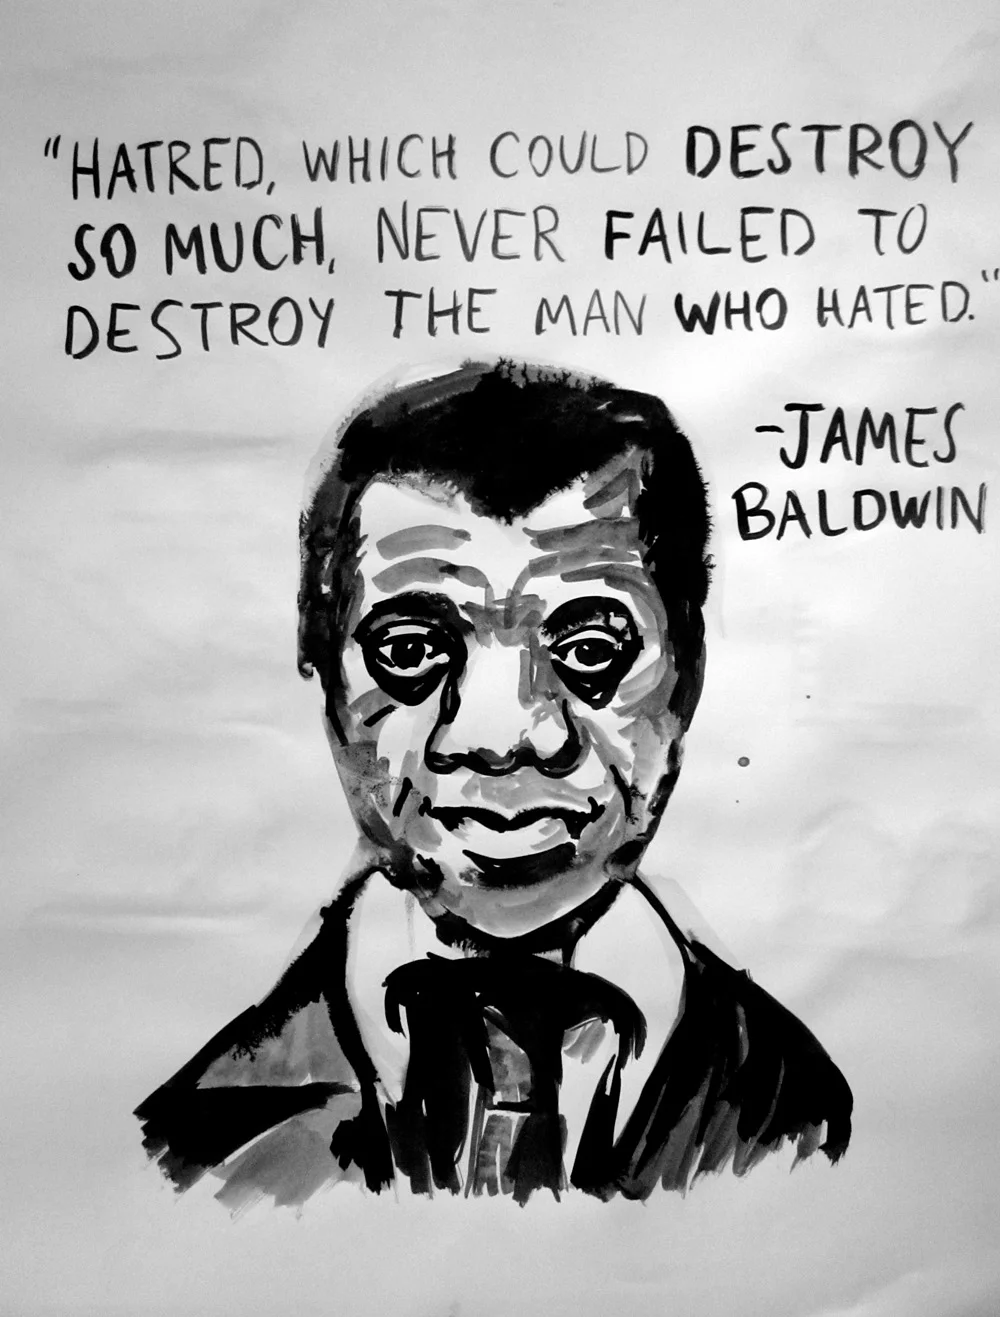 "HATRED, WHICH COULD DESTROY
SO MUCH, NEVER FAILED TO
DESTROY THE MAN WHO HATED."
-JAMES
BALDWIN